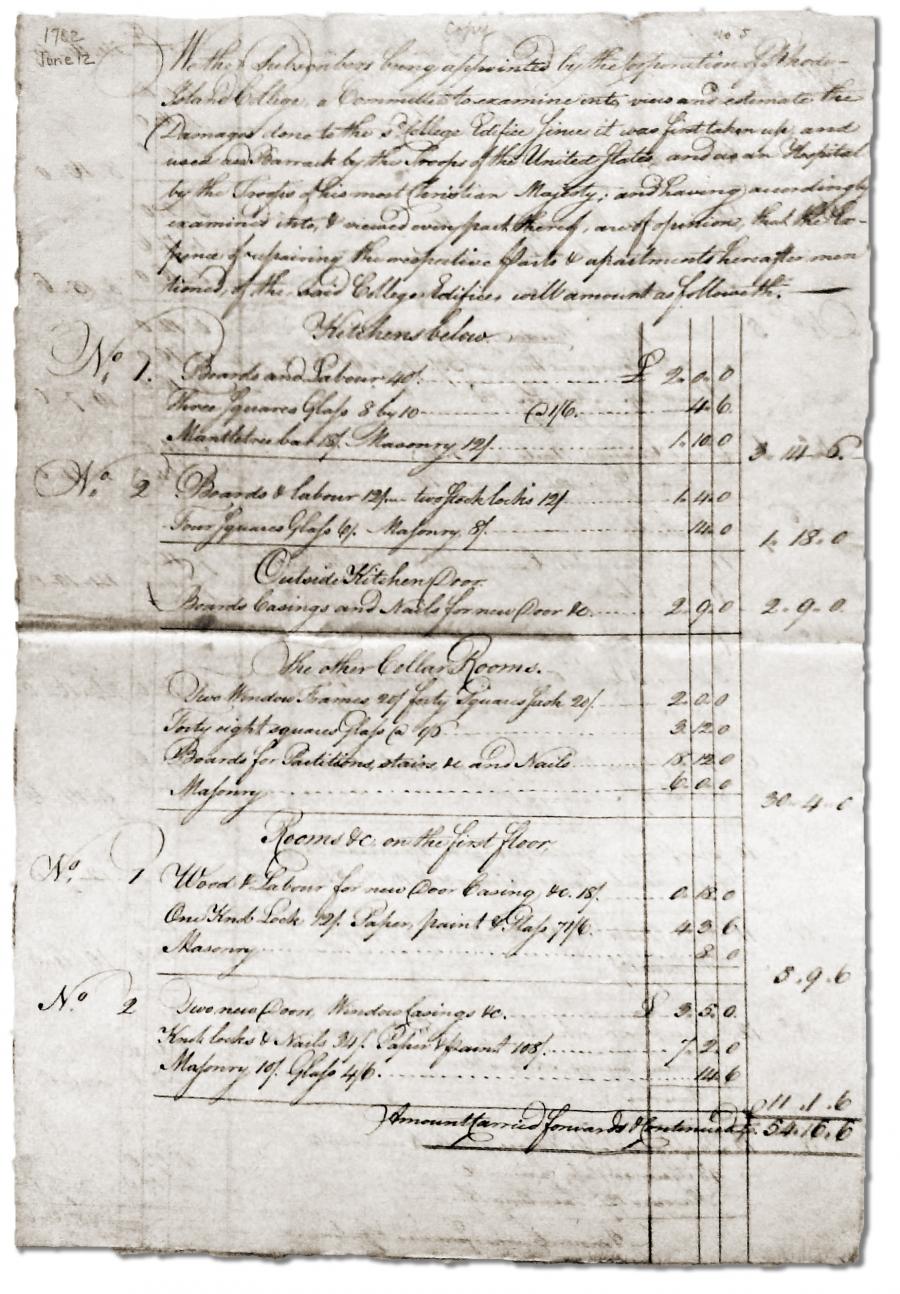 1782
June 12
Copy
No 5
We the Subscribers being appointed by the Corporation of Rhode-
Island College, a Committee to examine into, view and estimate the
Damages done to the sd College Edifice since it was first taken up, and
used as a Barrack by the Troops of the United States, and as an Hospital
by the Troops of his most Christian Majesty; and having accordingly
examined into, & viewed every part thereof, are of opinion, that the Ex-
pence of repairing the respective Parts & apartments hereafter men
tioned, of the said College Edifice will amount as followeth.
Kitchens below.
No. 1. Boards and Labour 40/. £ 2.0.0
Three Squares Glass 8 by 10 @ 1/6. 4.6
Mantletree bar 18/. Masonry 12/. 1.10.0
3.14.6.
No. 2 Boards & labour 12/ two stock locks 12/ 1.4.0
Four Squares Glass 6/. Masonry 8/. 14.0
1.18.0
Outside Kitchen Door.
Boards Casings and Nails for new Door &c. 2.9.0 2.9.0
The other Cellar Rooms.
Two Window Frames 20/ forty Squares Sash 20/. 2.0.0
Forty eight squares Glass @ 1/6 3.12.0
Boards for Partitions, stairs, &c and Nails 18.12.0
Masonry 6.0.0
30.4.0
Rooms &c. on the first floor.
No. 1 Wood & Labour for new Door Casing &c. 18/. 0.18.0
One Knob Lock 12/. Paper, paint & Glass 71/6. 4.3.6
Masonry 8.0
5.9.6
No. 2 Two new Doors, Window Casings &c. £ 3.5.0
Knob locks & Nails 34/. Paper & paint 108/. 7.2.0
Masonry 10/. Glass 4/6. 14.6
11.1.6
Amount Carried forwards & Continued £. 54.16.6